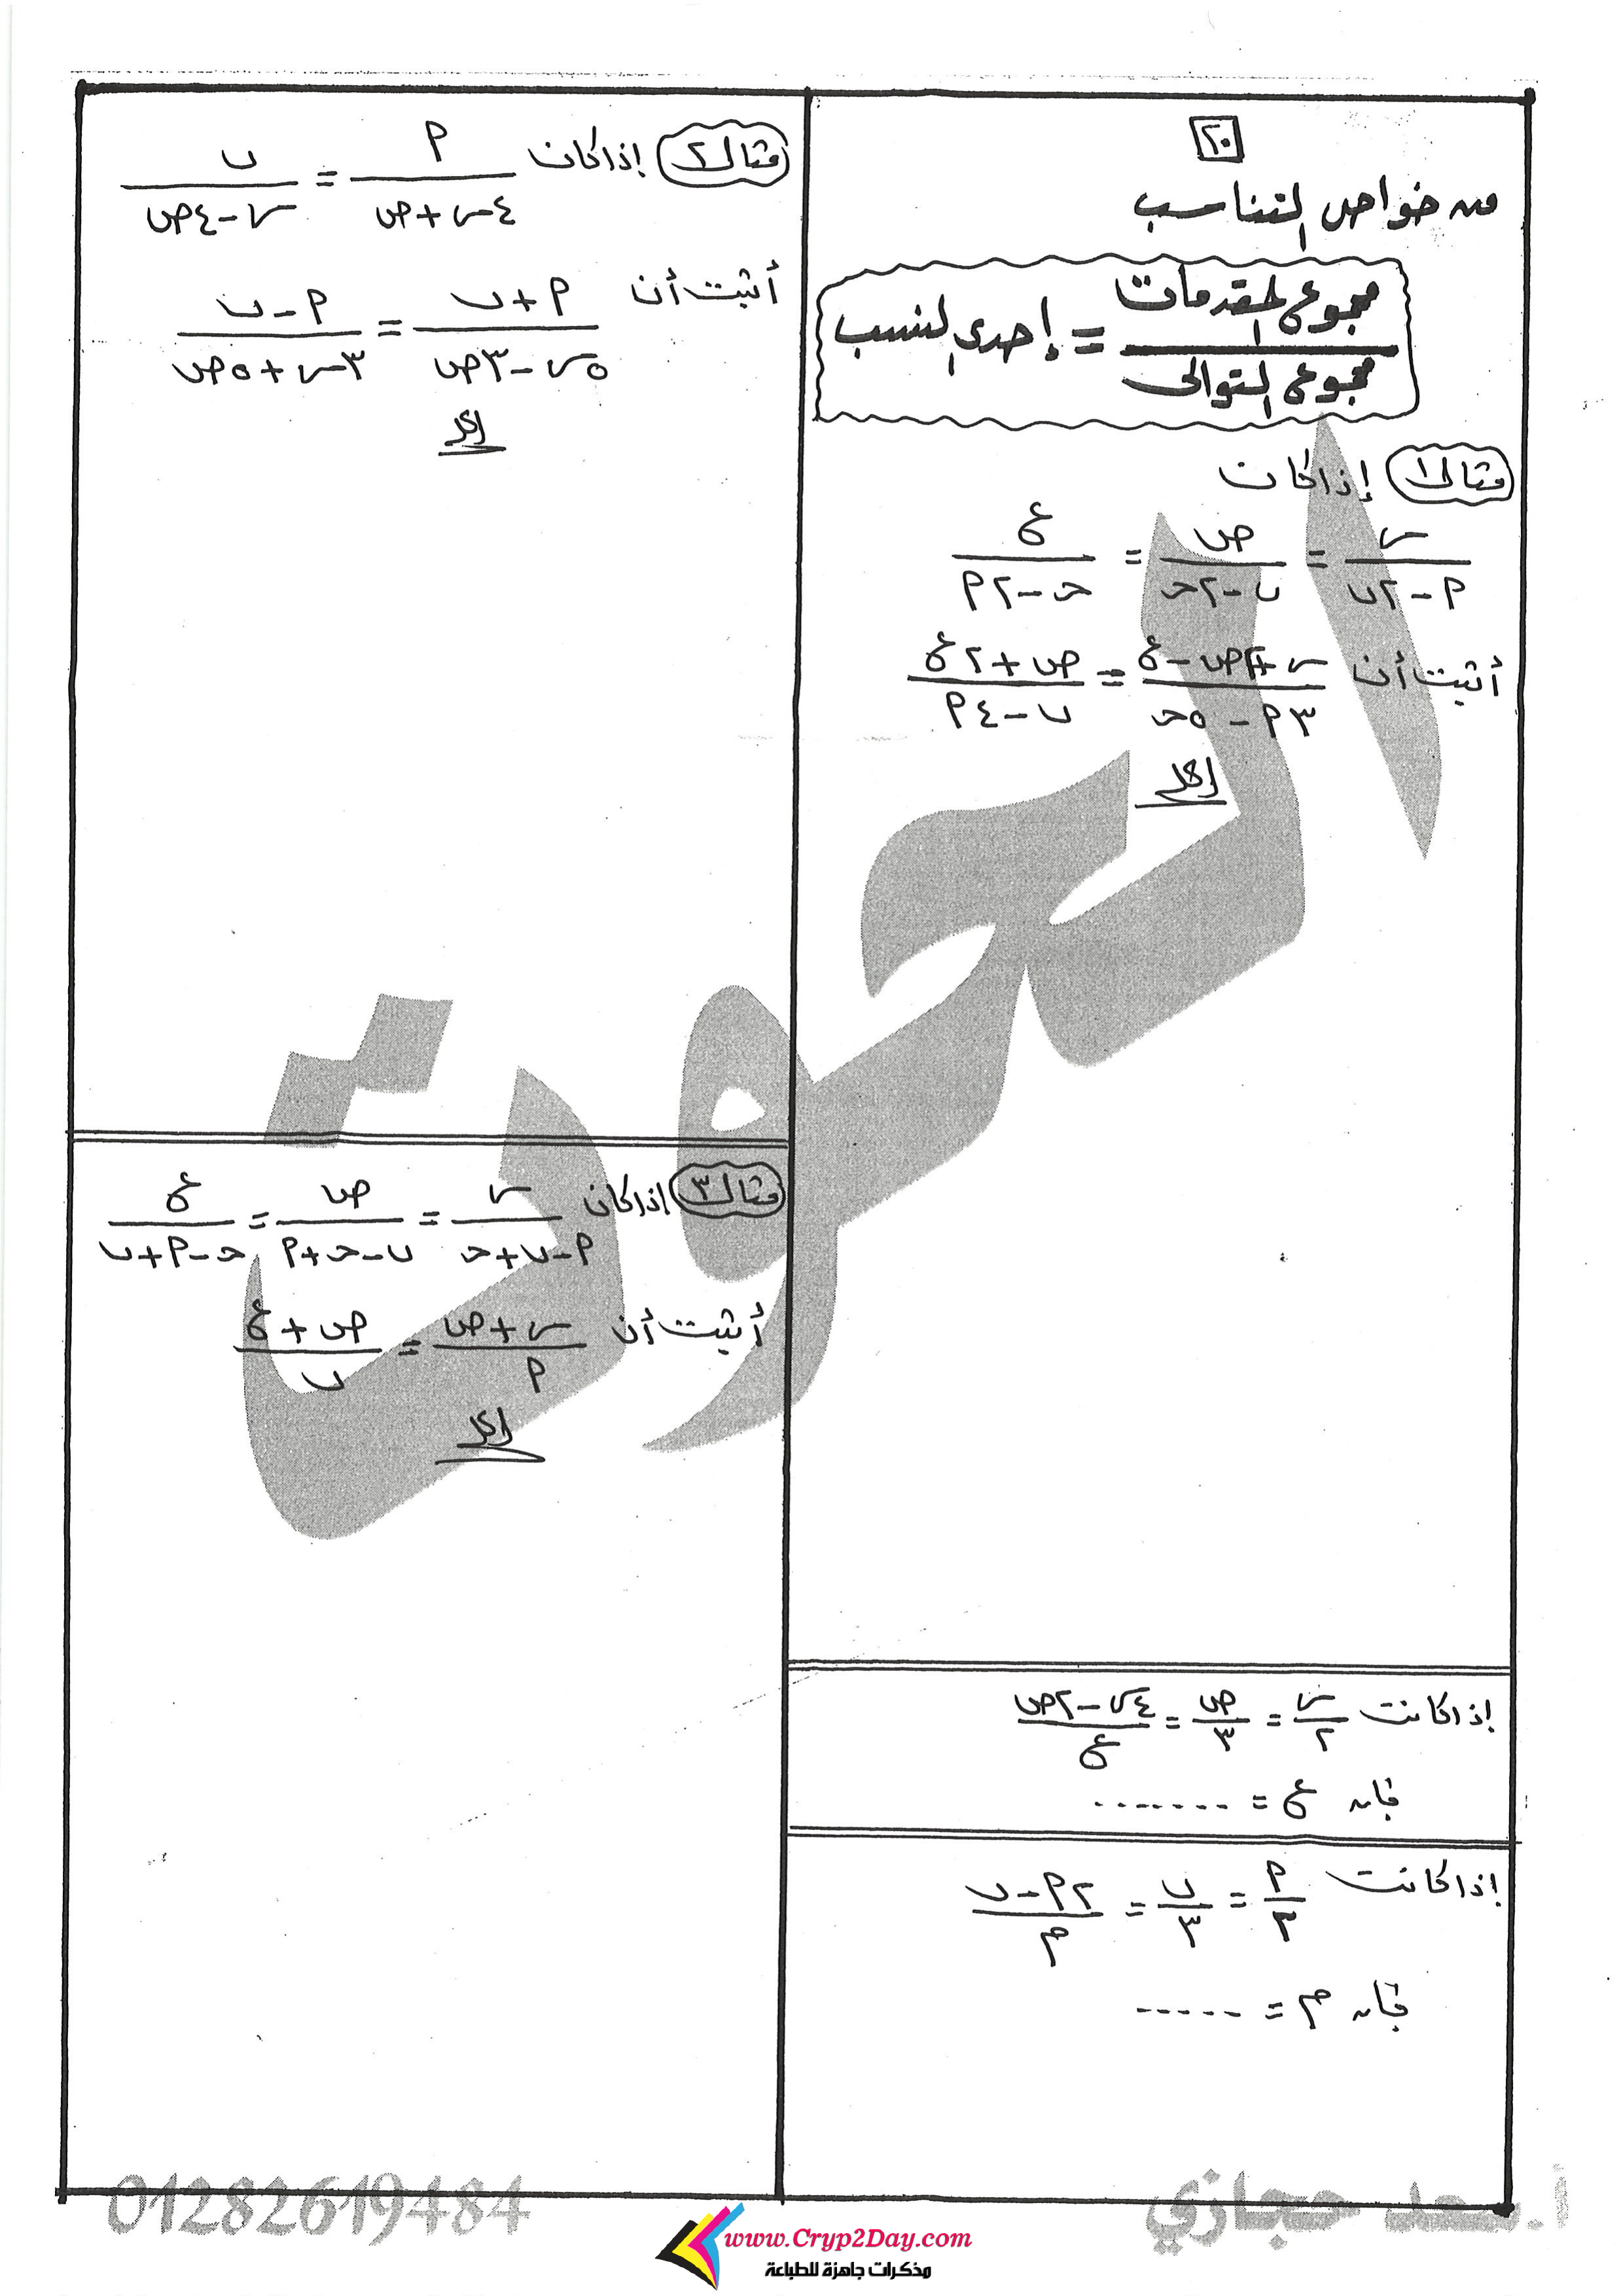 ٢٠
من خواص التناسب
مجموع المقدمات / مجموع التوالى = إحدى النسب
مثال ١ إذا كان
س / (أ - ٢ب) = ص / (ب - ٢ج) = ع / (ج - ٢أ)
أثبت أن (س + ٢ص - ع) / (٣أ - ٥ج) = (ص + ٢ع) / (ب - ٤أ)
الحل
إذا كانت س/٢ = ص/٣ = (٤س - ٢ص)/ع
فإن ع = .......
إذا كانت أ/٢ = ب/٣ = (٢أ - ب)/م
فإن م = .....
مثال ٢ إذا كان أ / (٤س + ص) = ب / (س - ٤ص)
أثبت أن (أ + ب) / (٥س - ٣ص) = (أ - ب) / (٣س + ٥ص)
الحل
مثال ٣ إذا كان س / (أ - ب + ج) = ص / (ب - ج + أ) = ع / (ج - أ + ب)
أثبت أن (س + ص) / أ = (ص + ع) / ب
الحل
العوت
01282619484
أ. حجازي
www.Cryp2Day.com
مذكرات جاهزة للطباعة